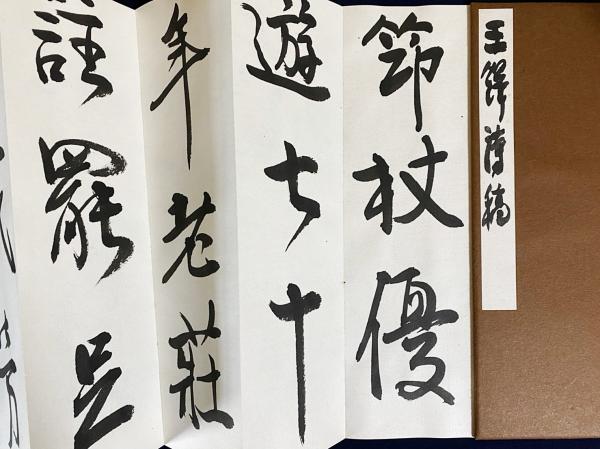 王鐸詩稿
筇杖優
遊七十
年老莊
註罷足